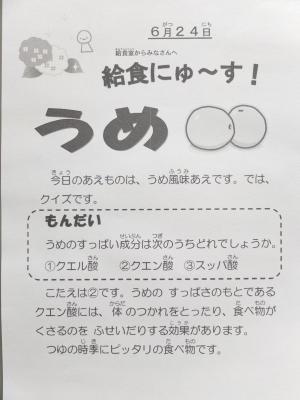 ６月２４日
給食室からみなさんへ
給食にゅ〜す！
うめ
今日のあえものは、うめ風味あえです。では、
クイズです。
もんだい
うめのすっぱい成分は次のうちどれでしょうか。
①クエル酸　②クエン酸　③スッパ酸
こたえは②です。うめの すっぱさのもとである
クエン酸には、体 のつかれをとったり、食べ物が
くさるのを ふせいだりする効果があります。
つゆの時季にピッタリの食べ物です。